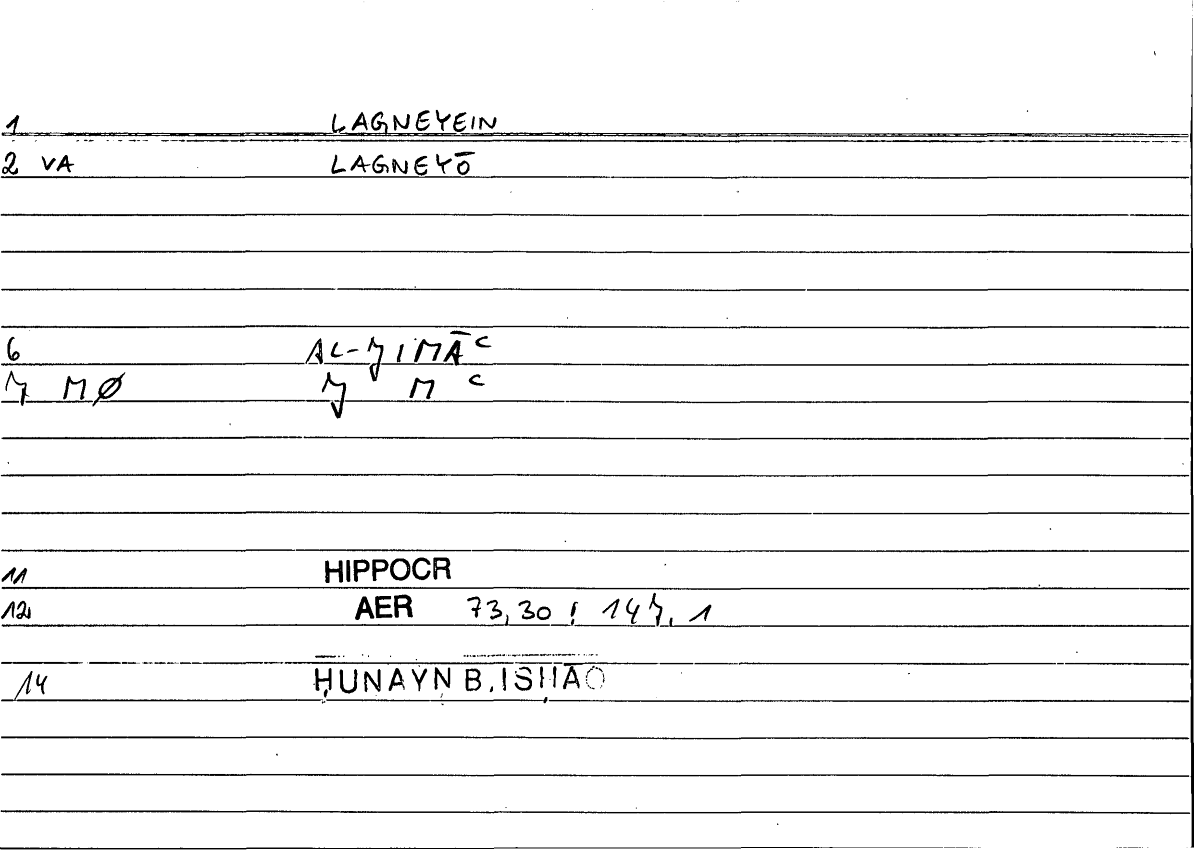 1 LAGNEYEIN
2 VA LAGNEYŌ
6 AL-J̌IMĀC
7 MØ J̌ M C
11 HIPPOCR
12 AER 73,30 ; 147,1
14 ḤUNAYN B.ISḤĀQ